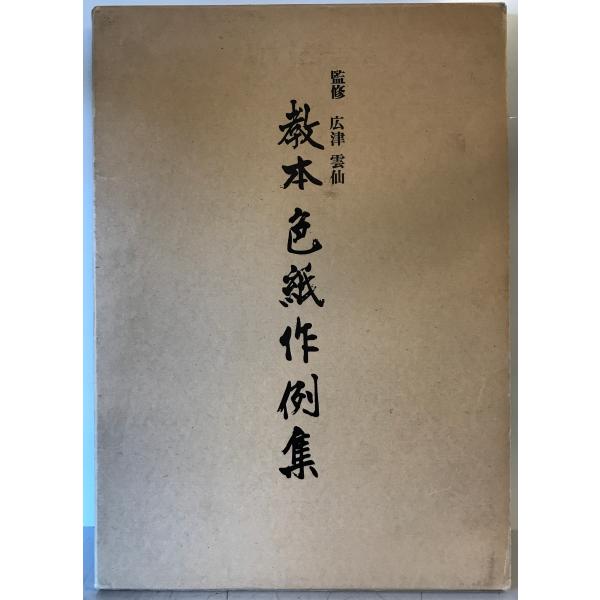 監修 広津雲仙
教本色紙作例集